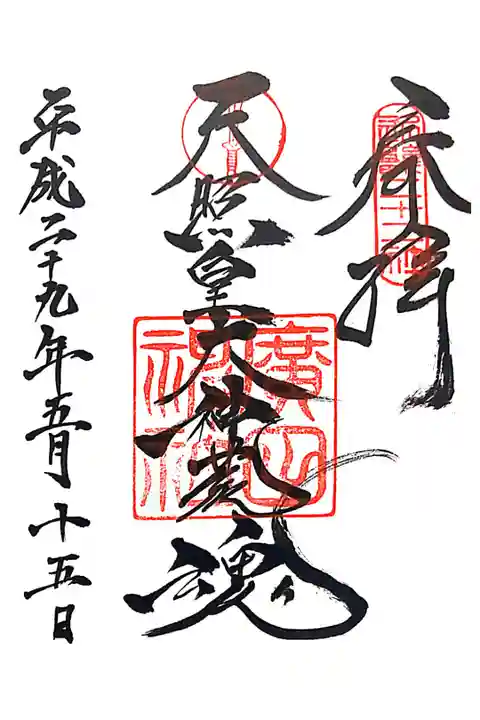 奉拝
天照皇大神荒魂
廣田
神社
平成二十九年五月十五日